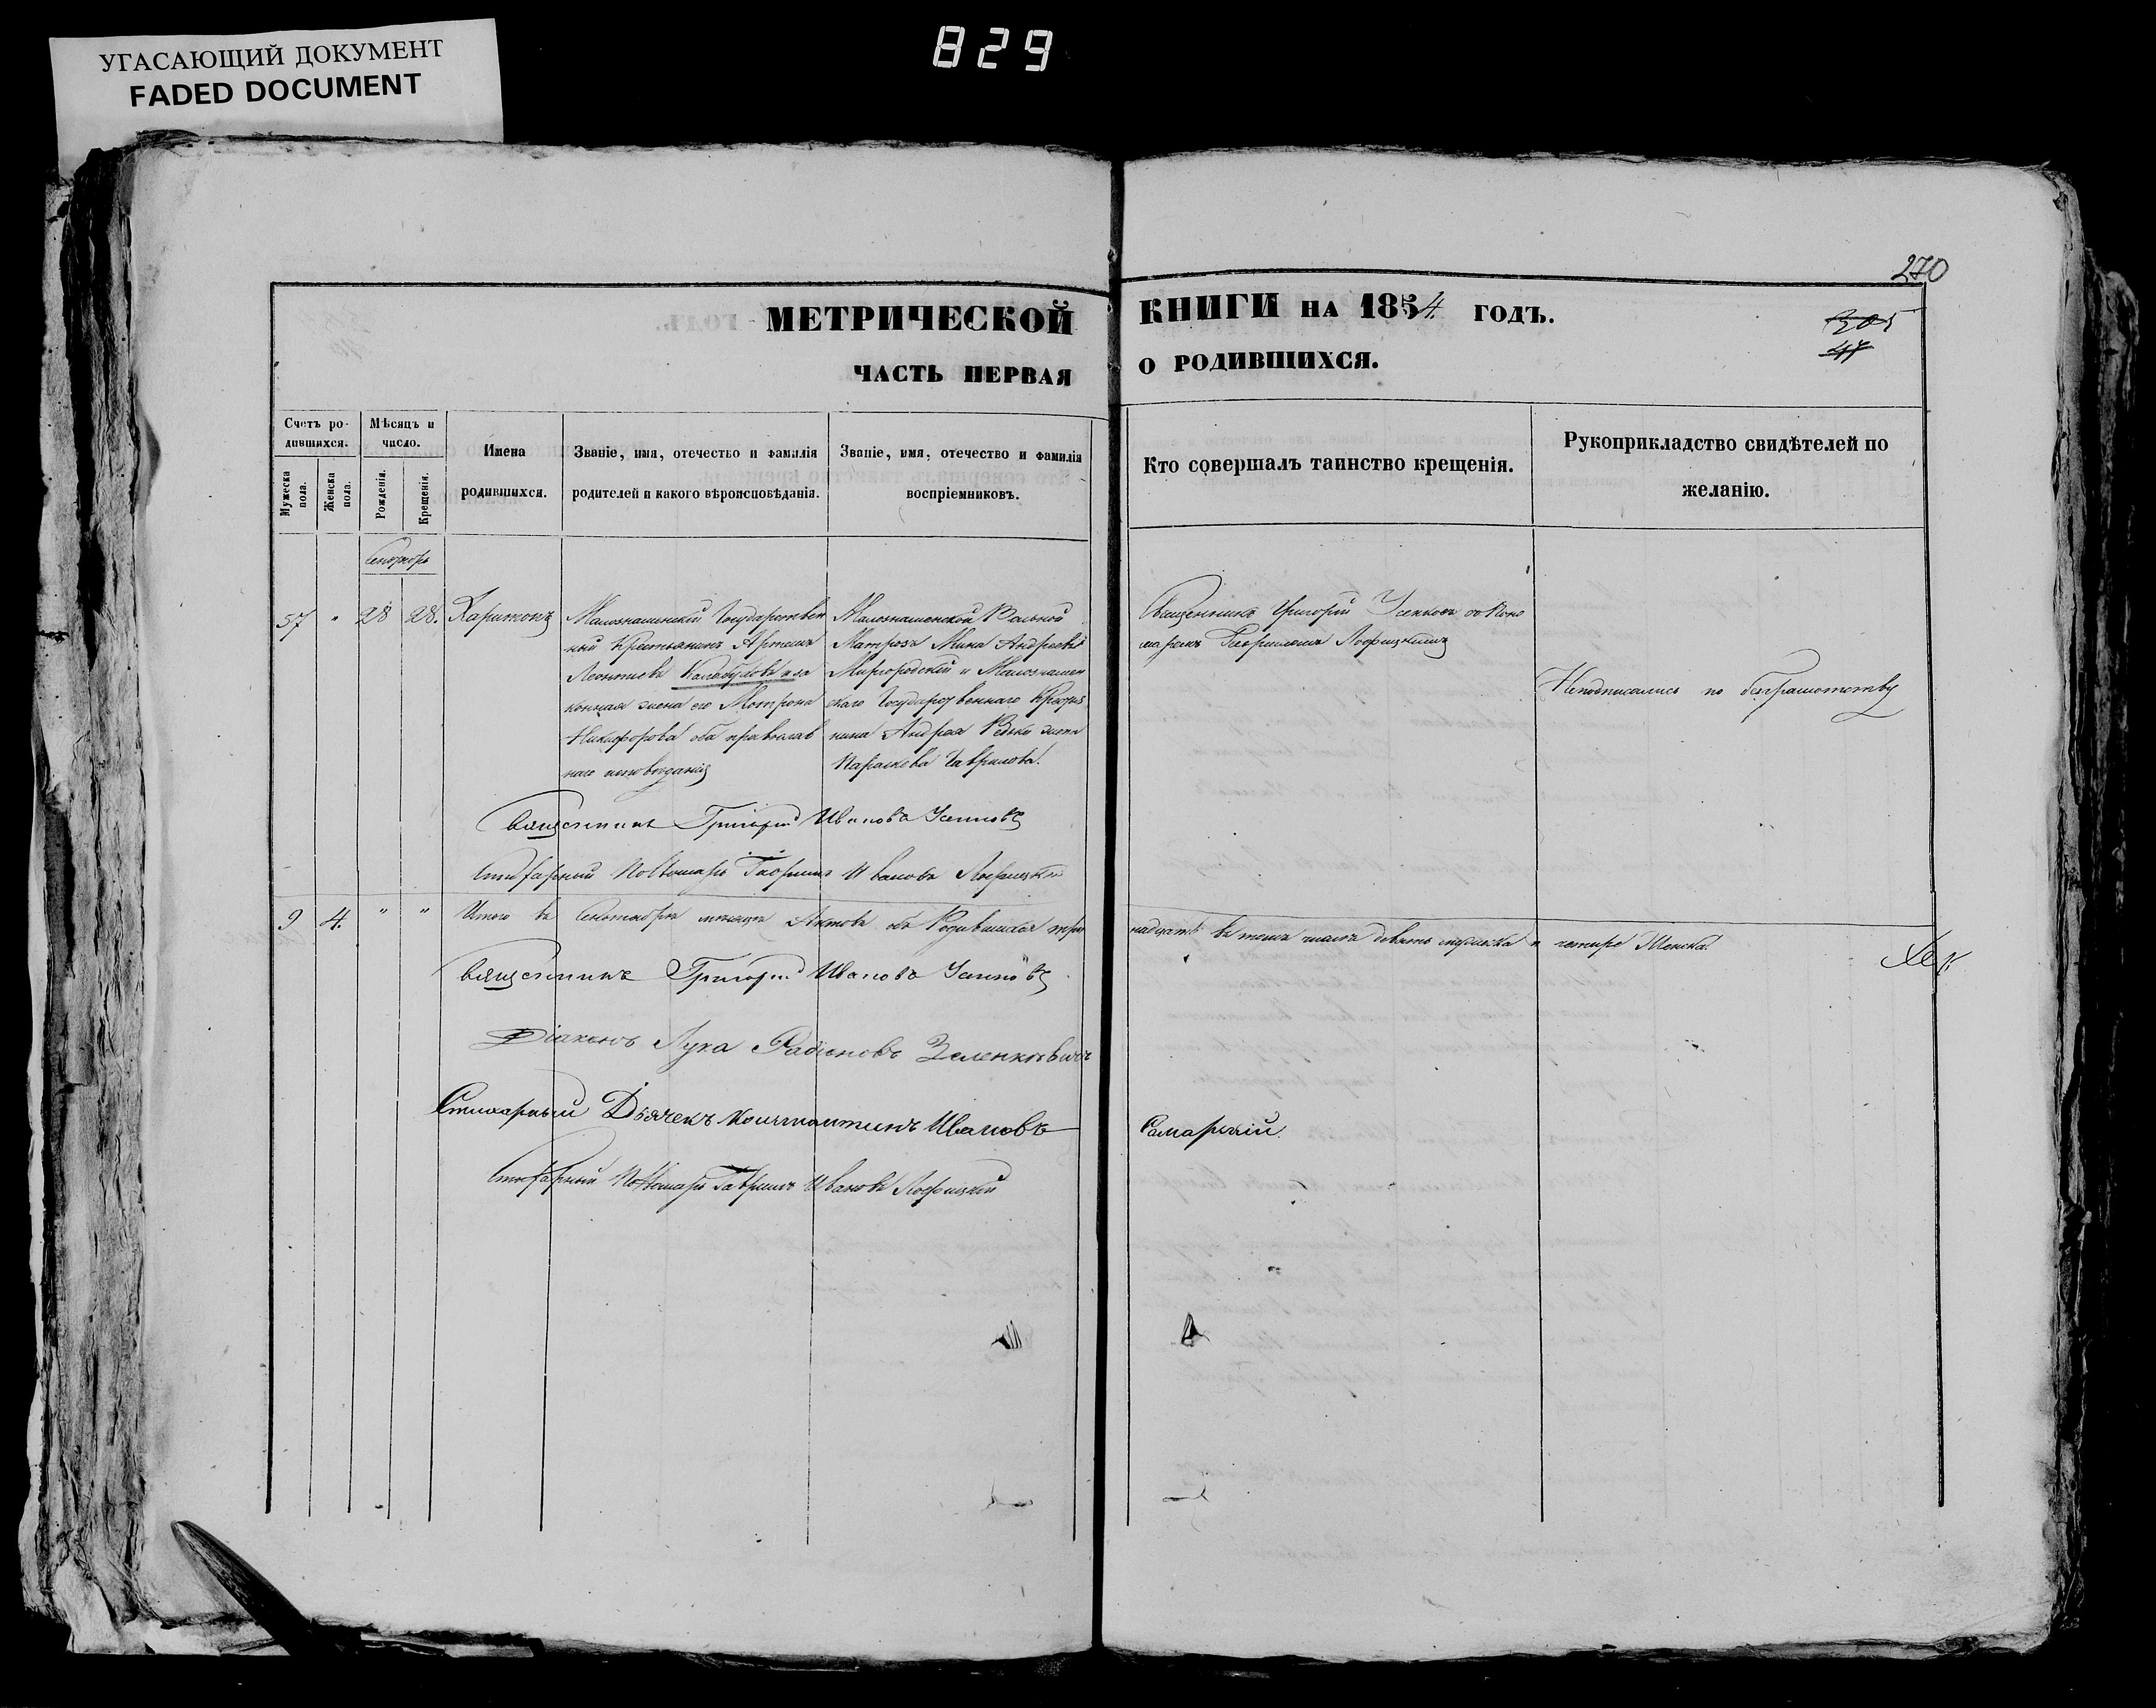 УГАСАЮЩИЙ ДОКУМЕНТ
FADED DOCUMENT
829
270
МЕТРИЧЕСКОЙ КНИГИ НА 1854 ГОДЪ.
305
47
ЧАСТЬ ПЕРВАЯ О РОДИВШИХСЯ.
Счетъ ро-
дившихся.
Мужеска
пола.
Женска
пола.
Мѣсяцъ и
число.
Рожденія.
Крещенія.
Имена
родившихся.
Званіе, имя, отечество и фамилія
родителей и какого вѣроисповѣданія.
Званіе, имя, отечество и фамилія
воспріемниковъ.
Кто совершалъ таинство крещенія.
Рукоприкладство свидѣтелей по
желанію.
Сентябрь
57 " 28 28. Харитонъ
Малознаменскій Государствен
ный Крестьянинъ Артемъ
Леонтіевъ и за
конная жена его Мотрона
Никифорова оба православ
наго исповѣданія
Малознаменской Вольной
Матрозъ Мина Андреевъ
Миргородскій и Малознамен
скаго Государственнаго Крестья
нина Андрея жена
Параскева Гаврилова.
Священникъ Григорій Усенковъ съ Поно
маремъ Гавриломъ
Неподписались по безграмотству
Священникъ Григорій Ивановъ Усенковъ
Стихарный Пономарь Гавріилъ Ивановъ
9 4. " " Итого въ Сентябрѣ мѣсяцѣ Актовъ объ Родившихся три
надцать въ томъ числѣ девять мужеска и четыре Женска.
Священникъ Григорій Ивановъ Усенковъ
Діаконъ Лука Радіоновъ Зеленкевичъ
Стихарный Дьячекъ Константинъ Ивановъ Самарскій.
Стихарный Пономарь Гавріилъ Ивановъ